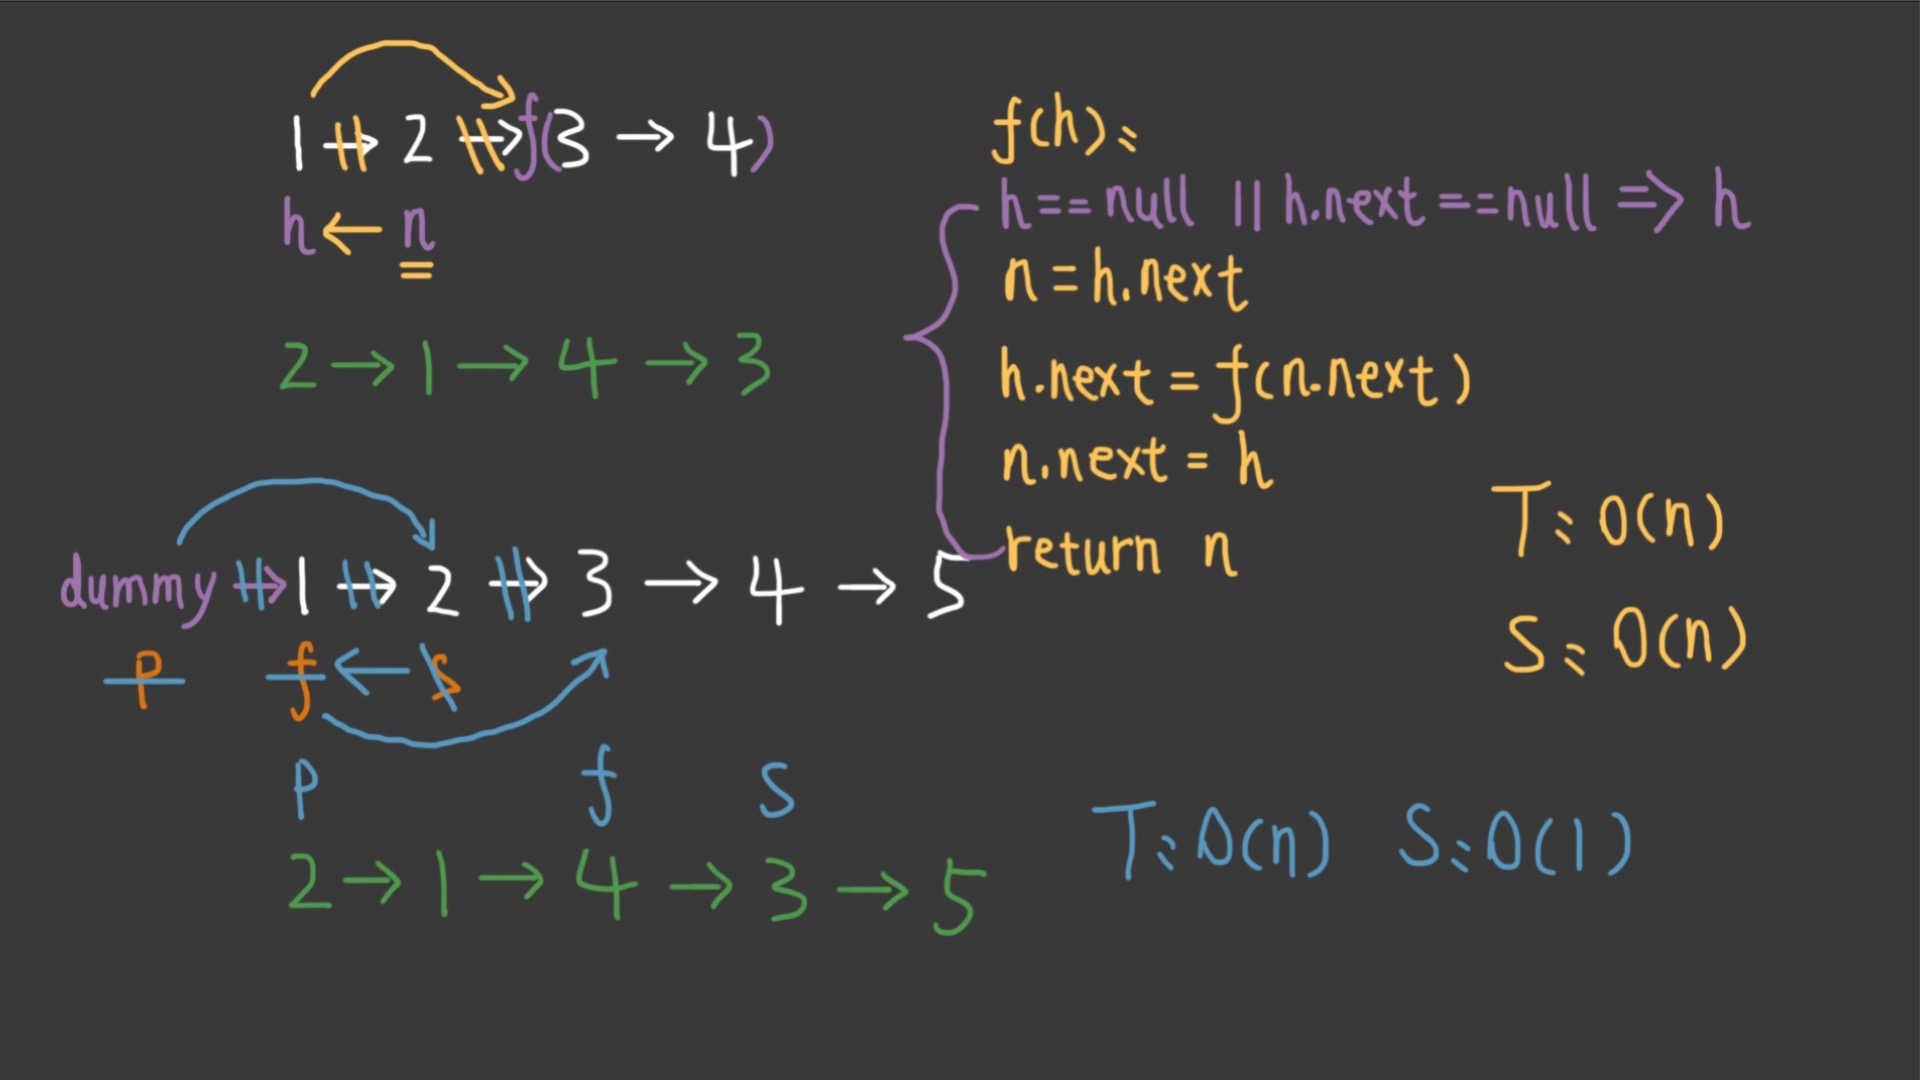 1 → 2 → f(3 → 4)
h ← n
2 → 1 → 4 → 3
f(h):
h == null || h.next == null => h
n = h.next
h.next = f(n.next)
n.next = h
return n
T: O(n)
S: O(n)
dummy → 1 → 2 → 3 → 4 → 5
p f ← s
p f s
2 → 1 → 4 → 3 → 5
T: O(n) S: O(1)